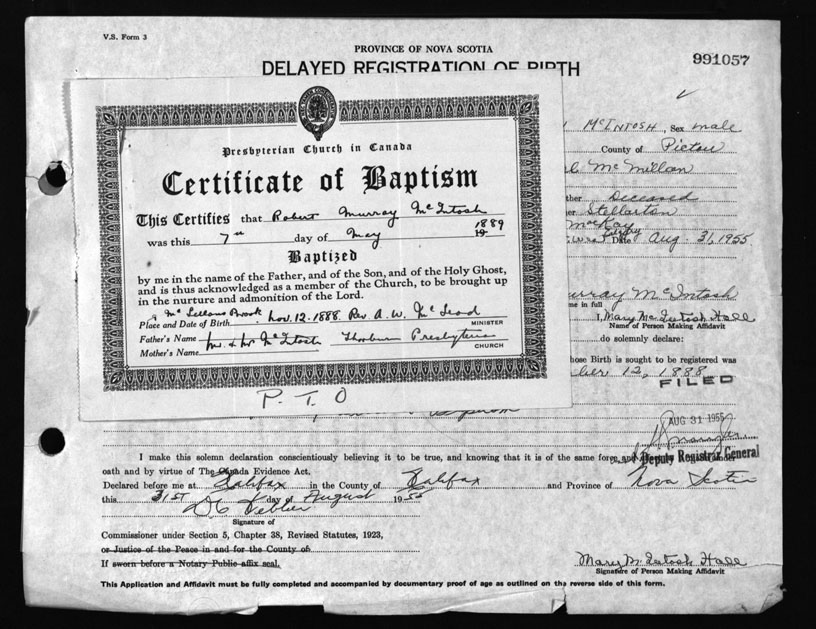 V.S. Form 3
PROVINCE OF NOVA SCOTIA
991057
DELAYED REGISTRATION OF BIRTH
McINTOSH, Sex male
County of Pictou
McMillan
Deceased
Stellarton
MacKay
Date Aug. 31, 1955
Murray McIntosh
me in full
I, Mary McIntosh Hall
Name of Person Making Affidavit
do solemnly declare:
hose Birth is sought to be registered was
ber 12, 1888
FILED
AUG 31 1955
Deputy Registrar General
Presbyterian Church in Canada
Certificate of Baptism
This Certifies that Robert Murray McIntosh
was this 7th day of May 1889
19
Baptized
by me in the name of the Father, and of the Son, and of the Holy Ghost,
and is thus acknowledged as a member of the Church, to be brought up
in the nurture and admonition of the Lord.
McLellans Brook Nov. 12. 1888. Rev A. W. McLeod
Place and Date of Birth MINISTER
Father's Name Mr. & Mrs McIntosh Thorburn Presbyterian
Mother's Name CHURCH
P. T. O
I make this solemn declaration conscientiously believing it to be true, and knowing that it is of the same force and
oath and by virtue of The Canada Evidence Act.
Declared before me at Halifax in the County of Halifax and Province of Nova Scotia
this 31st day of August 1955
Signature of
Commissioner under Section 5, Chapter 38, Revised Statutes, 1923,
or Justice of the Peace in and for the County of
If sworn before a Notary Public affix seal.
Mary McIntosh Hall
Signature of Person Making Affidavit
This Application and Affidavit must be fully completed and accompanied by documentary proof of age as outlined on the reverse side of this form.